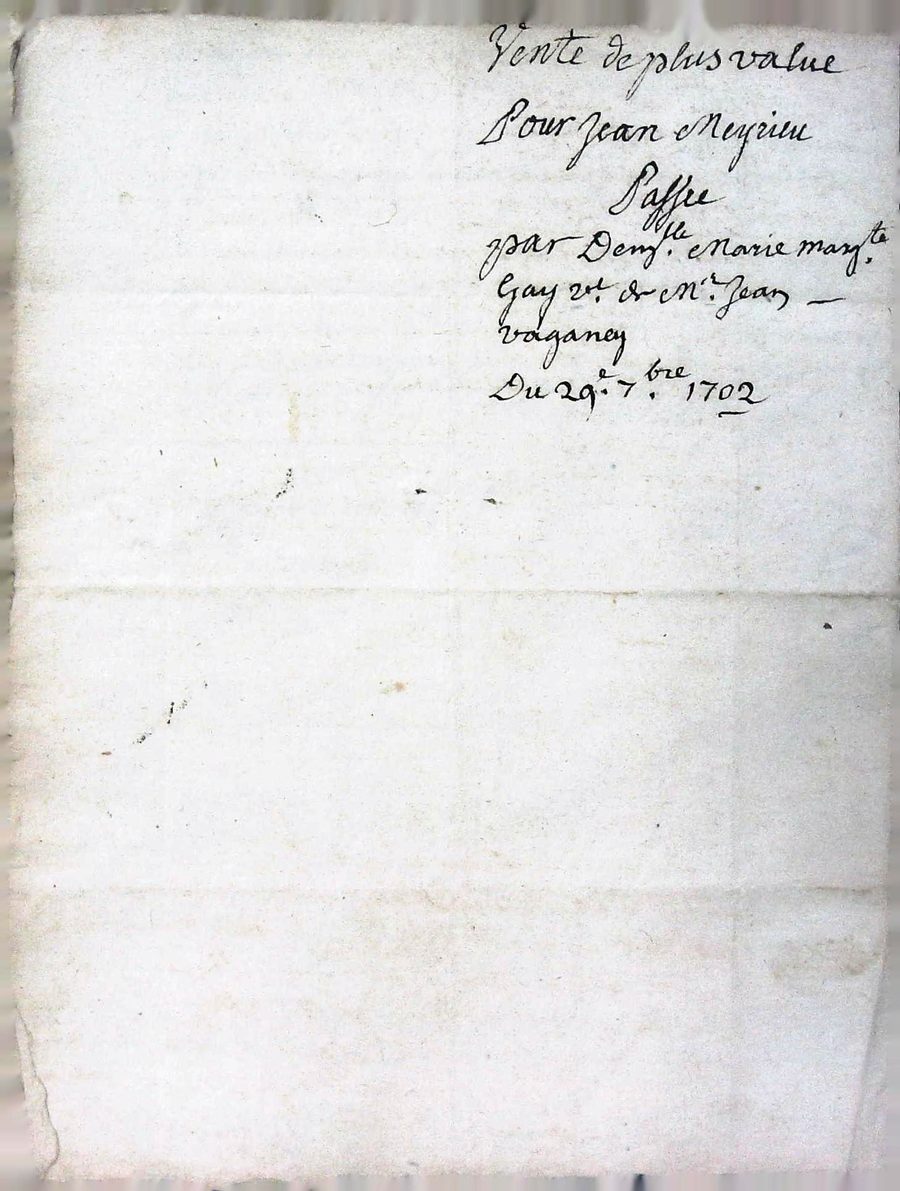 Vente de plus value
Pour Jean Meyrieu
Passée
par Demlle. Marie margte.
Gay ve. de Mr. Jean
vaganey
Du 29e. 7bre. 1702